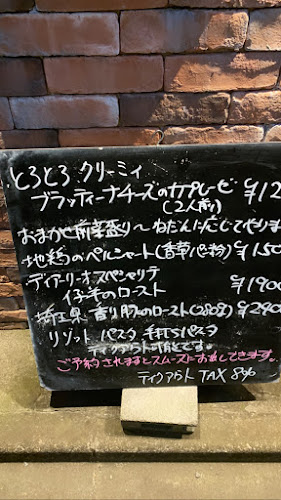 とろとろ クリーミィ
ブラッティーナチーズのカプレーゼ ¥12
(2人前)
おまかせ前菜盛り〜ねだんに応じてやります
地鶏のペルシャート(香草パン粉) ¥150
ディアーリーオスペシャリテ
仔羊のロースト ¥1900
埼玉県 香り豚のロースト(280g) ¥290
リゾット パスタ 手打ちパスタ
テイクアウト可能です。
ご予約されますとスムーズにお出しできます。
テイクアウト TAX 8%